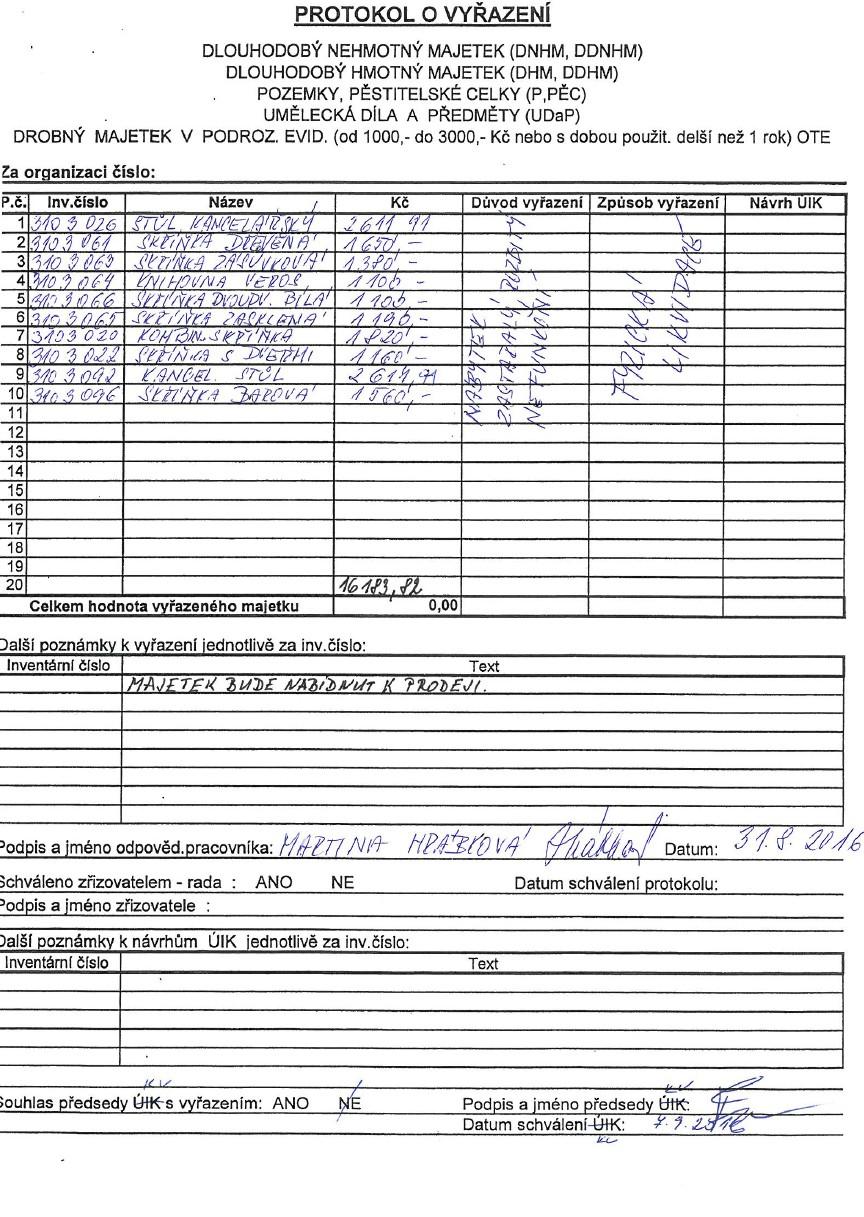 PROTOKOL O VYŘAZENÍ
DLOUHODOBÝ NEHMOTNÝ MAJETEK (DNHM, DDNHM)
DLOUHODOBÝ HMOTNÝ MAJETEK (DHM, DDHM)
POZEMKY, PĚSTITELSKÉ CELKY (P,PĚC)
UMĚLECKÁ DÍLA A PŘEDMĚTY (UDaP)
DROBNÝ MAJETEK V PODROZ. EVID. (od 1000,- do 3000,- Kč nebo s dobou použit. delší než 1 rok) OTE
Za organizaci číslo:
P.č. Inv.číslo Název Kč Důvod vyřazení Způsob vyřazení Návrh ÚIK
1 3103026 STŮL KANCELÁŘSKÝ 2611 91
2 3103061 SKŘÍŇKA DŘEVĚNÁ 1650,-
3 3103063 SKŘÍŇKA ZÁSUVKOVÁ 1380,-
4 3103064 KNIHOVNA VEROS 1100,-
5 3103066 SKŘÍŇKA DVOUDV. BÍLÁ 1100,-
6 3103065 SKŘÍŇKA ZASKLENÁ 1190,-
7 3103020 KOMBIN. SKŘÍŇKA 1820,-
8 3103022 SKŘÍŇKA S DVEŘMI 1160,-
9 3103092 KANCEL. STŮL 2611,91
10 3103096 SKŘÍŇKA BAROVÁ 1560,-
NÁBYTEK
ZASTARALÝ, ROZBITÝ
NEFUNKČNÍ
FYZICKÁ
LIKVIDACE
11
12
13
14
15
16
17
18
19
20 16183,82
Celkem hodnota vyřazeného majetku 0,00
Další poznámky k vyřazení jednotlivě za inv.číslo:
Inventární číslo Text
MAJETEK BUDE NABÍDNUT K PRODEJI.
Podpis a jméno odpověd.pracovníka: MARTINA HRÁBKOVÁ Datum: 31.8.2016
Schváleno zřizovatelem - rada : ANO NE Datum schválení protokolu:
Podpis a jméno zřizovatele :
Další poznámky k návrhům ÚIK jednotlivě za inv.číslo:
Inventární číslo Text
KV KV
Souhlas předsedy ÚIK s vyřazením: ANO NE Podpis a jméno předsedy ÚIK:
Datum schválení ÚIK: 7.9.2016